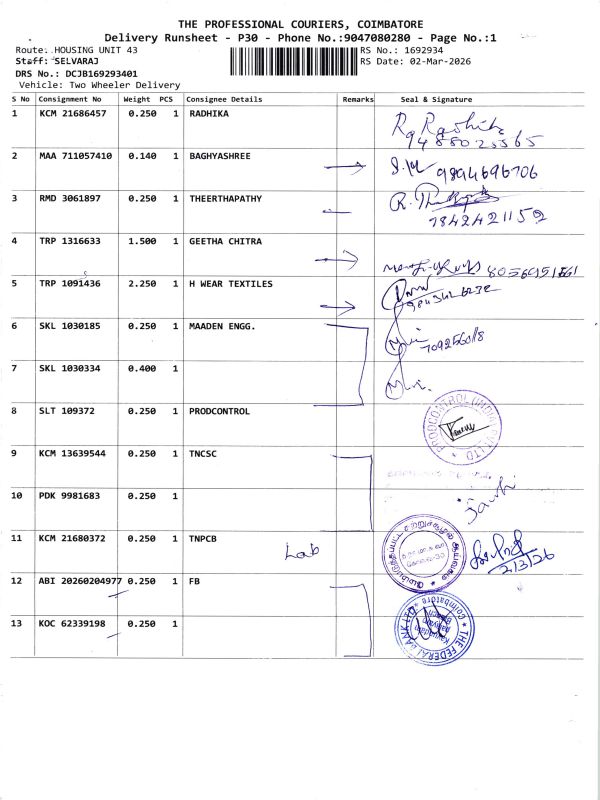 THE PROFESSIONAL COURIERS, COIMBATORE
Delivery Runsheet - P30 - Phone No.:9047080280 - Page No.:1
Route: HOUSING UNIT 43 RS No.: 1692934
Staff: SELVARAJ RS Date: 02-Mar-2026
DRS No.: DCJB169293401
Vehicle: Two Wheeler Delivery
S No Consignment No Weight PCS Consignee Details Remarks Seal & Signature
1 KCM 21686457 0.250 1 RADHIKA
2 MAA 711057410 0.140 1 BAGHYASHREE
9894696706
3 RMD 3061897 0.250 1 THEERTHAPATHY
7842421159
4 TRP 1316633 1.500 1 GEETHA CHITRA
5 TRP 1091436 2.250 1 H WEAR TEXTILES
6 SKL 1030185 0.250 1 MAADEN ENGG.
7 SKL 1030334 0.400 1
8 SLT 109372 0.250 1 PRODCONTROL
PRODCONTROL (INDIA) PVT LTD
9 KCM 13639544 0.250 1 TNCSC
10 PDK 9981683 0.250 1
11 KCM 21680372 0.250 1 TNPCB
Lab
2/3/26
12 ABI 20260204977 0.250 1 FB
13 KOC 62339198 0.250 1
THE FEDERAL BANK LTD
Coimbatore